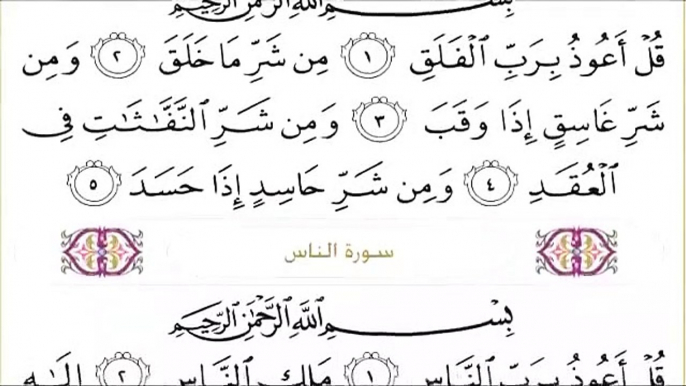 بِسْمِ ٱللَّهِ ٱلرَّحْمَٰنِ ٱلرَّحِيمِ
قُلْ أَعُوذُ بِرَبِّ ٱلْفَلَقِ ١ مِن شَرِّ مَا خَلَقَ ٢ وَمِن
شَرِّ غَاسِقٍ إِذَا وَقَبَ ٣ وَمِن شَرِّ ٱلنَّفَّٰثَٰتِ فِى
ٱلْعُقَدِ ٤ وَمِن شَرِّ حَاسِدٍ إِذَا حَسَدَ ٥
سورة الناس
بِسْمِ ٱللَّهِ ٱلرَّحْمَٰنِ ٱلرَّحِيمِ
قُلْ أَعُوذُ بِرَبِّ ٱلنَّاسِ ١ مَلِكِ ٱلنَّاسِ ٢ إِلَٰهِ